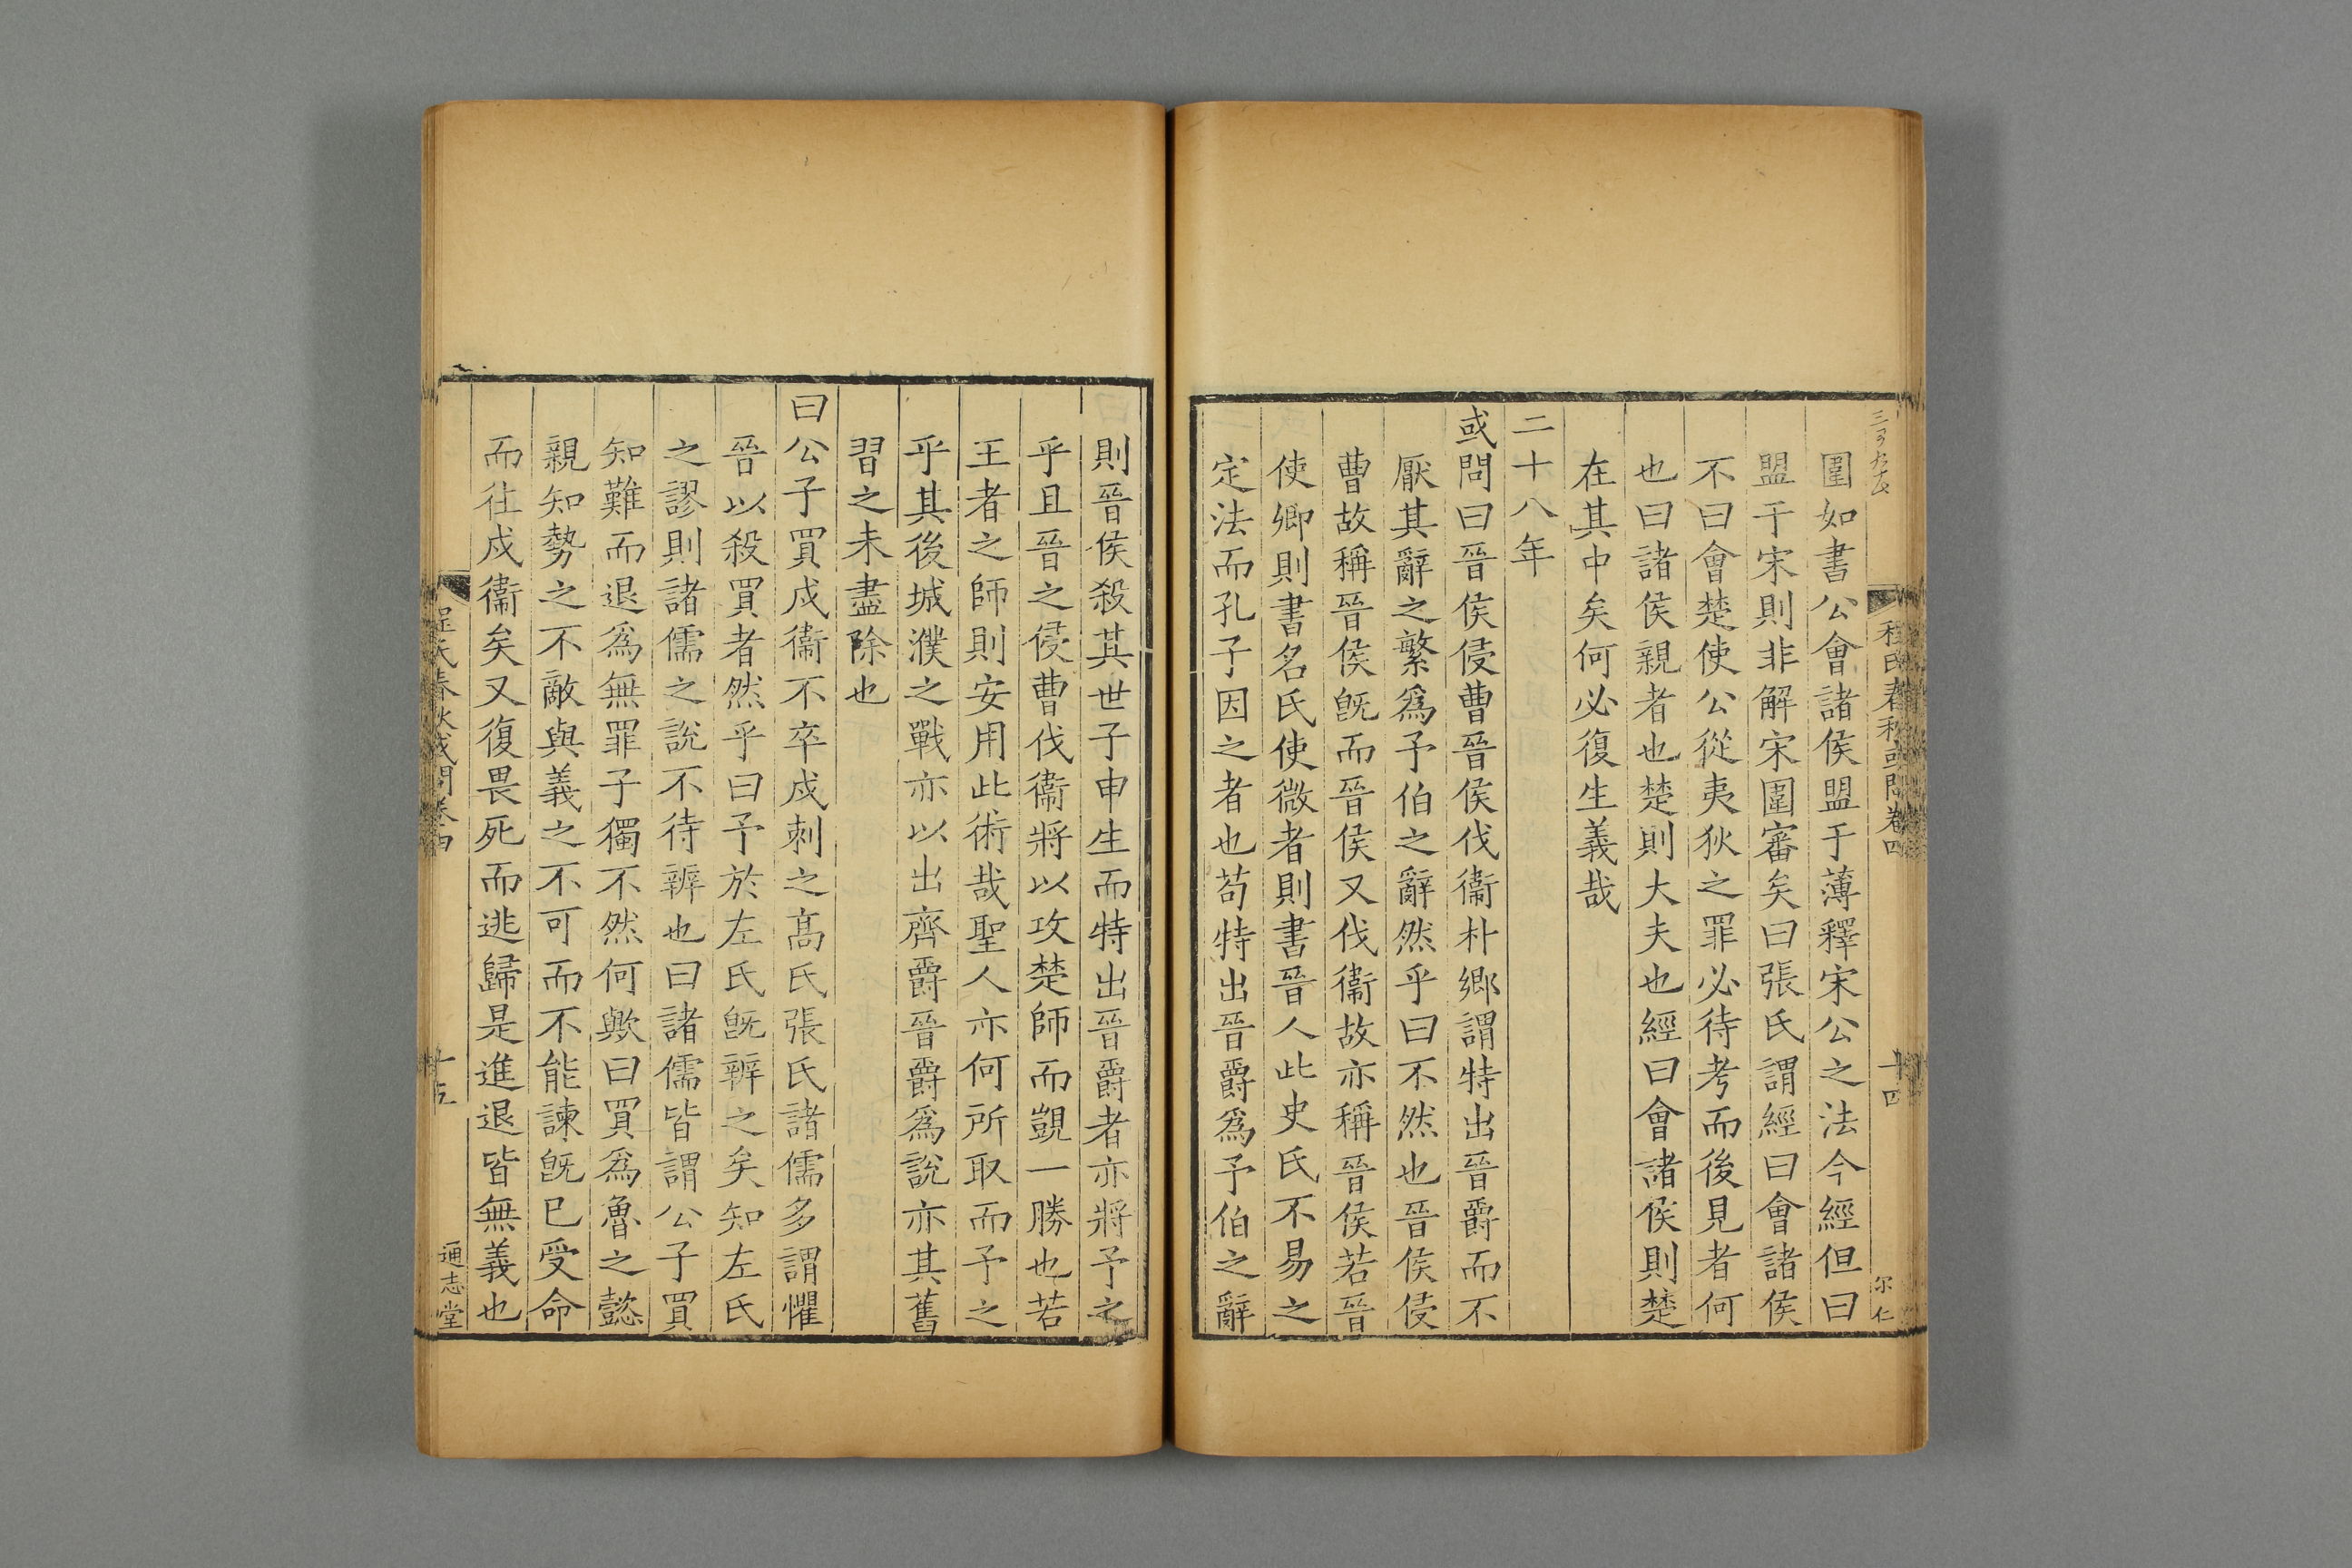 程氏春秋或問卷四
十四
尔仁
圍如書公會諸侯盟于薄釋宋公之法今經但曰
盟于宋則非解宋圍審矣曰張氏謂經曰會諸侯
不曰會楚使公從夷狄之罪必待考而後見者何
也曰諸侯親者也楚則大夫也經曰會諸侯則楚
在其中矣何必復生義哉
二十八年
或問曰晉侯侵曹晉侯伐衞朴鄉謂特出晉爵而不
厭其辭之繁爲予伯之辭然乎曰不然也晉侯侵
曹故稱晉侯旣而晉侯又伐衞故亦稱晉侯若晉
使卿則書名氏使微者則書晉人此史氏不易之
定法而孔子因之者也苟特出晉爵爲予伯之辭
則晉侯殺其世子申生而特出晉爵者亦將予之
乎且晉之侵曹伐衞將以攻楚師而覬一勝也若
王者之師則安用此術哉聖人亦何所取而予之
乎其後城濮之戰亦以出齊爵晉爵爲說亦其舊
習之未盡除也
曰公子買戍衞不卒戍刺之髙氏張氏諸儒多謂懼
晉以殺買者然乎曰予於左氏旣辨之矣知左氏
之謬則諸儒之說不待辨也曰諸儒皆謂公子買
知難而退爲無罪子獨不然何歟曰買爲魯之懿
親知勢之不敵與義之不可而不能諫旣已受命
而往戍衞矣又復畏死而逃歸是進退皆無義也
程氏春秋或問卷四
十五
通志堂